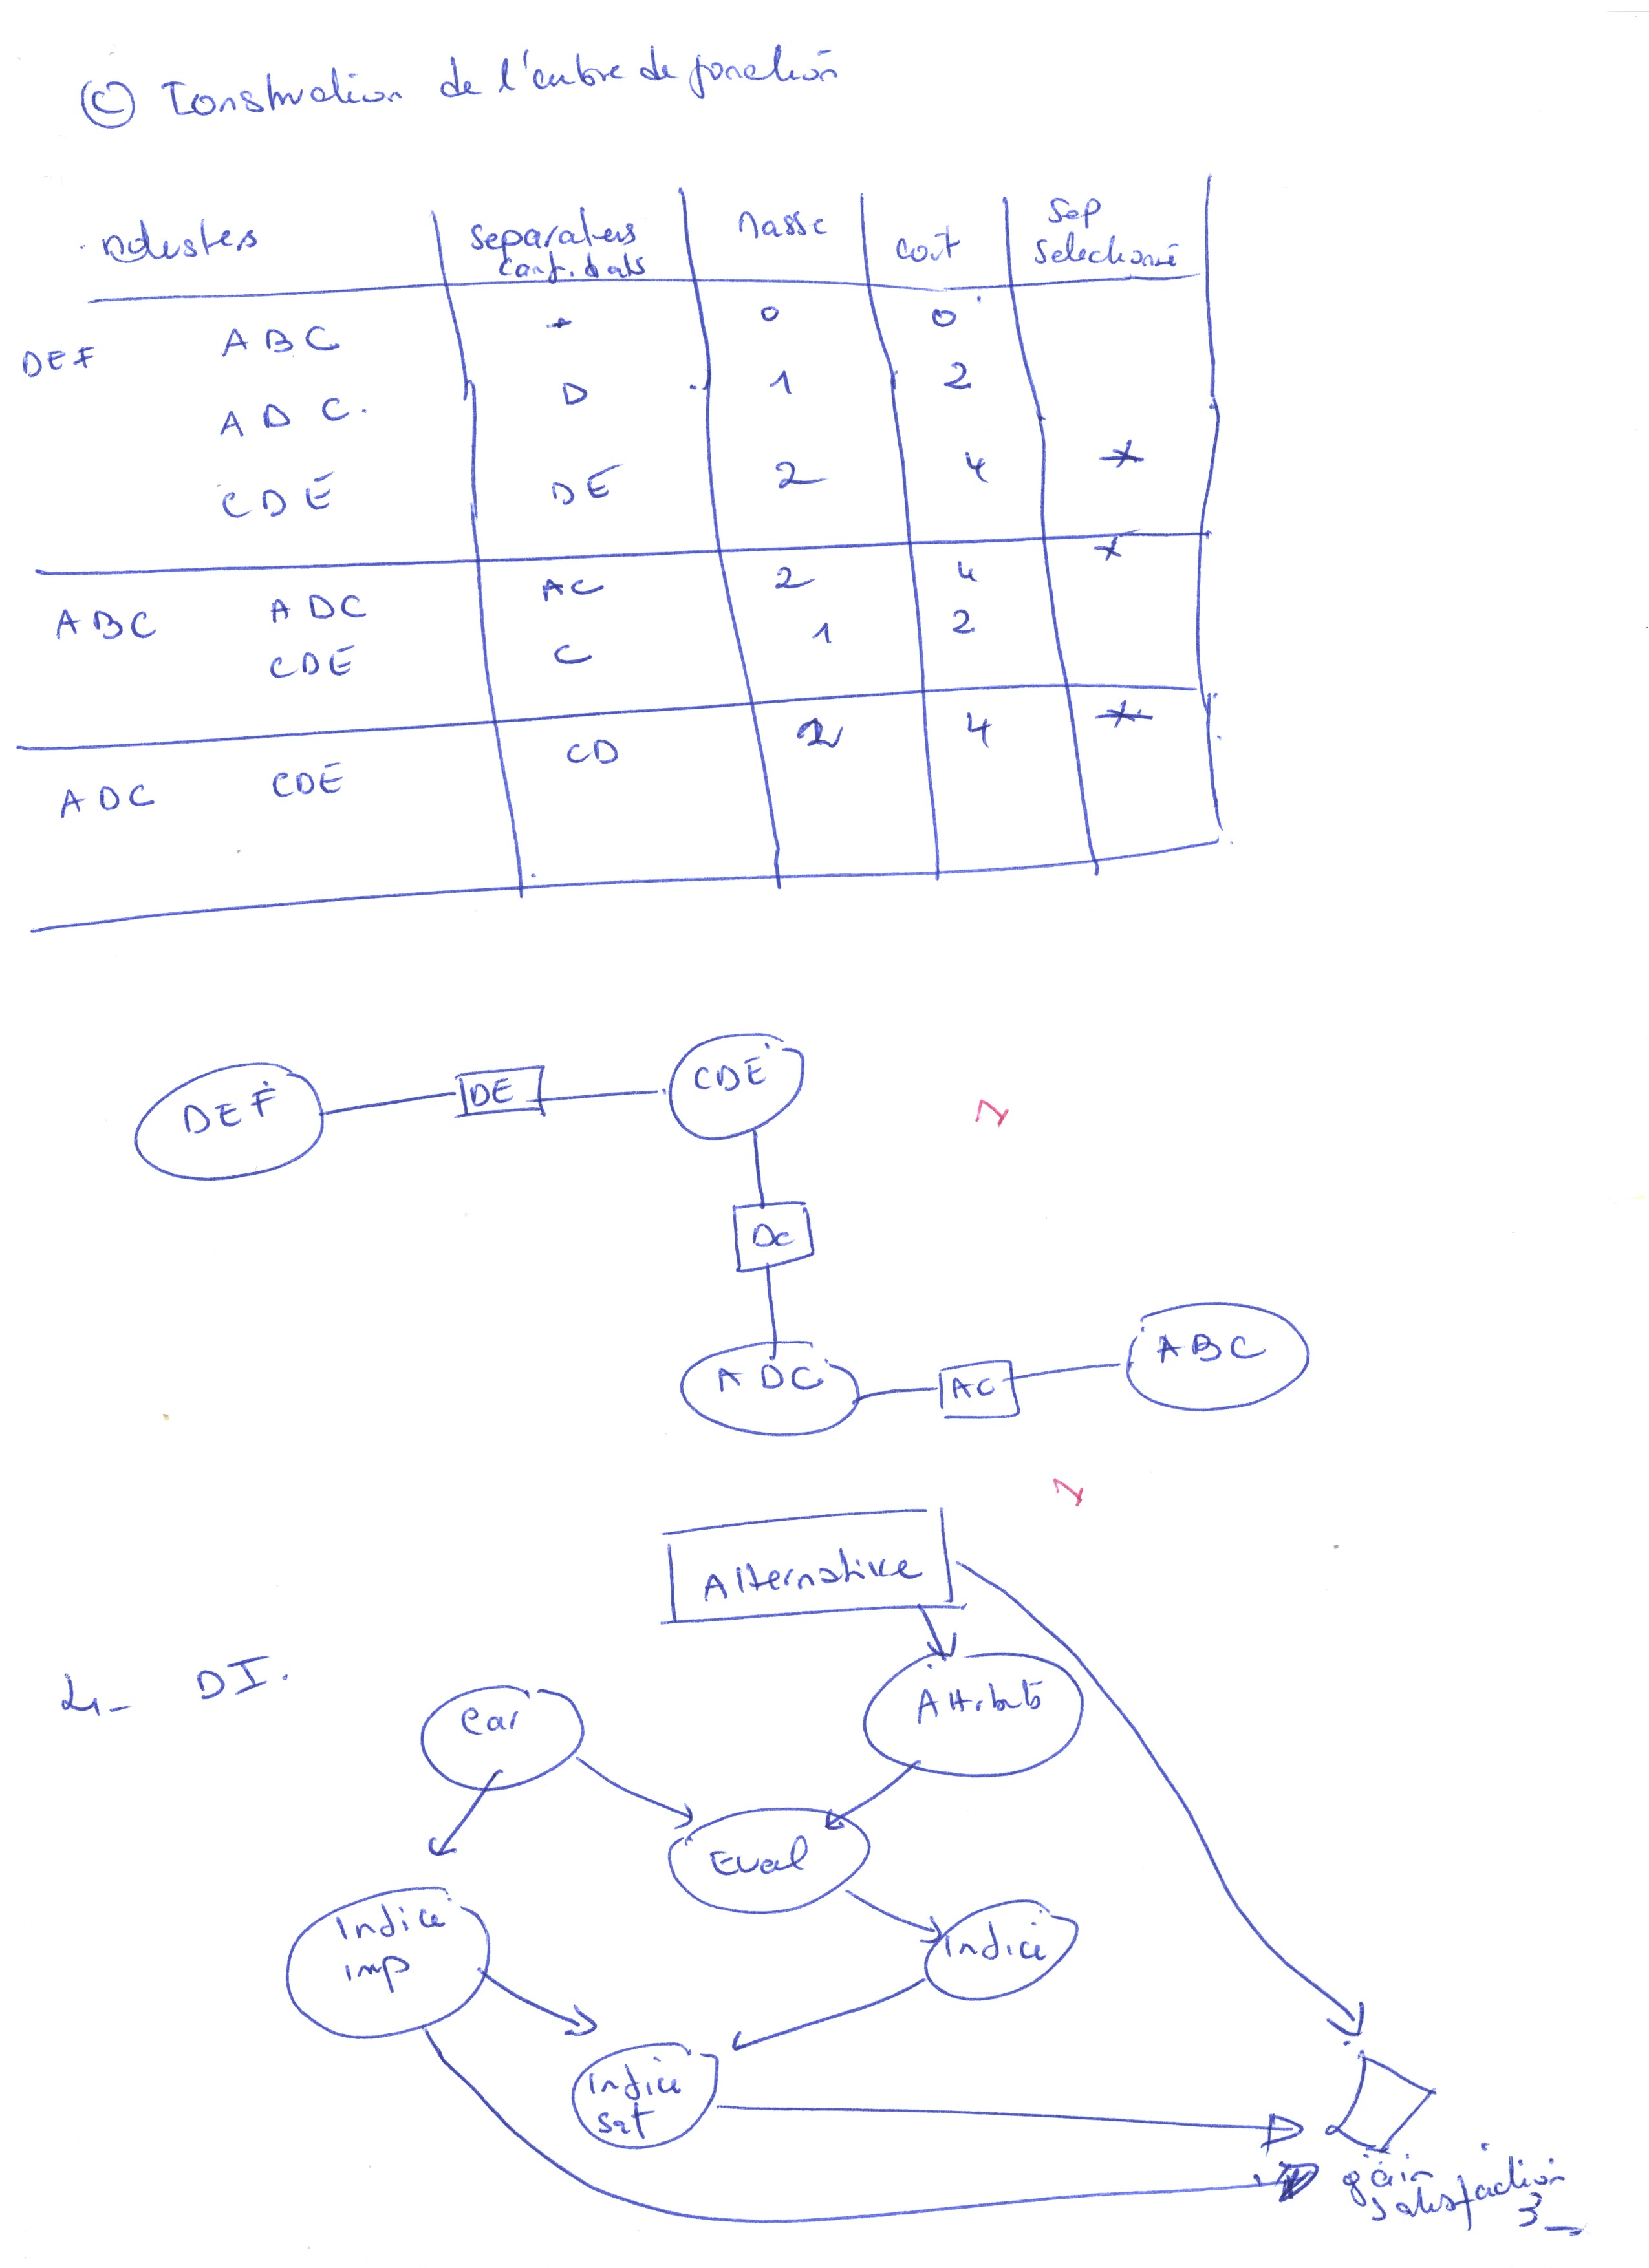 (C) Construction de l'arbre de jonction
clusters | separateurs candidats | Masse | cout | Sep selectionné
DEF ABC | - | 0 | 0
ADC. | D | 1 | 2
CDE | DE | 2 | 4 | *
ABC ADC | AC | 2 | 4 | *
CDE | C | 1 | 2
ADC CDE | CD | 2 | 4 | *
DEF DE CDE
1
DC
ADC AC ABC
1
Alternative
DI.
Car Attributs
Eval
Indice imp
Indice
Indice sat
gain satisfaction
3_